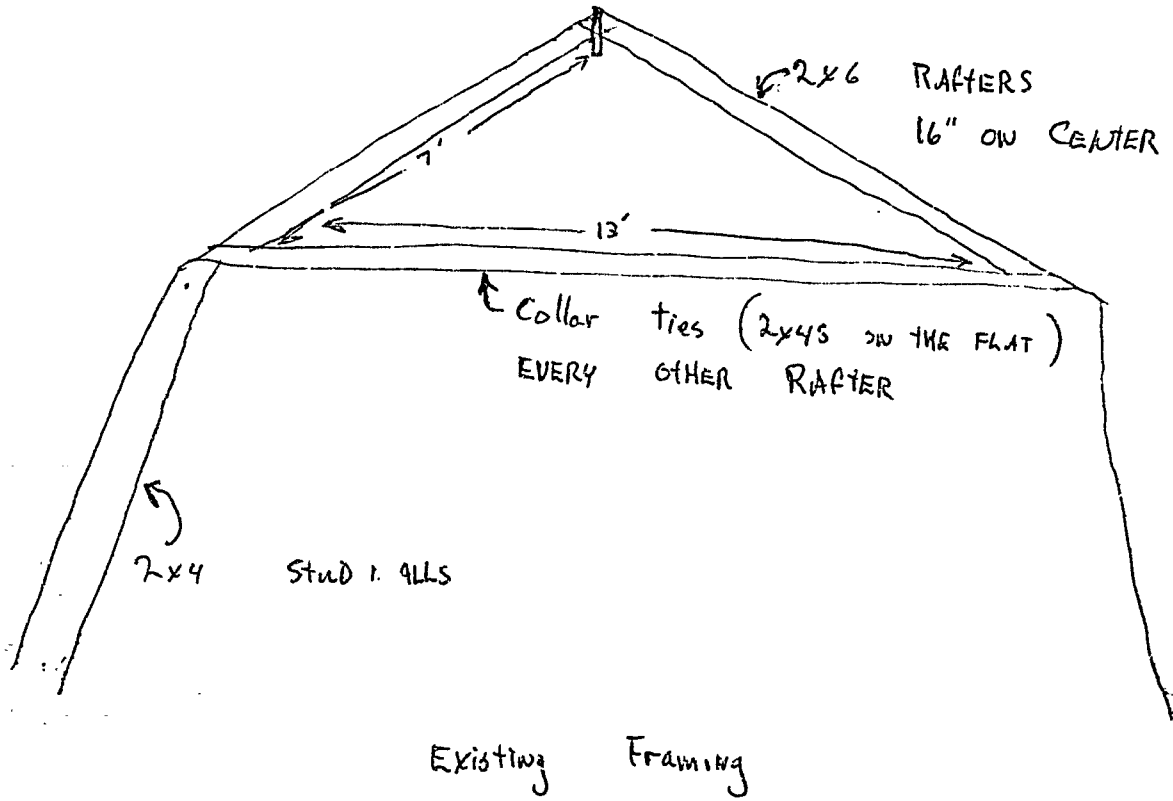 2x6 RAFTERS
16" ON CENTER
7'
13'
Collar ties (2x4s ON THE FLAT)
EVERY OTHER RAFTER
2x4 StuD
Existing Framing